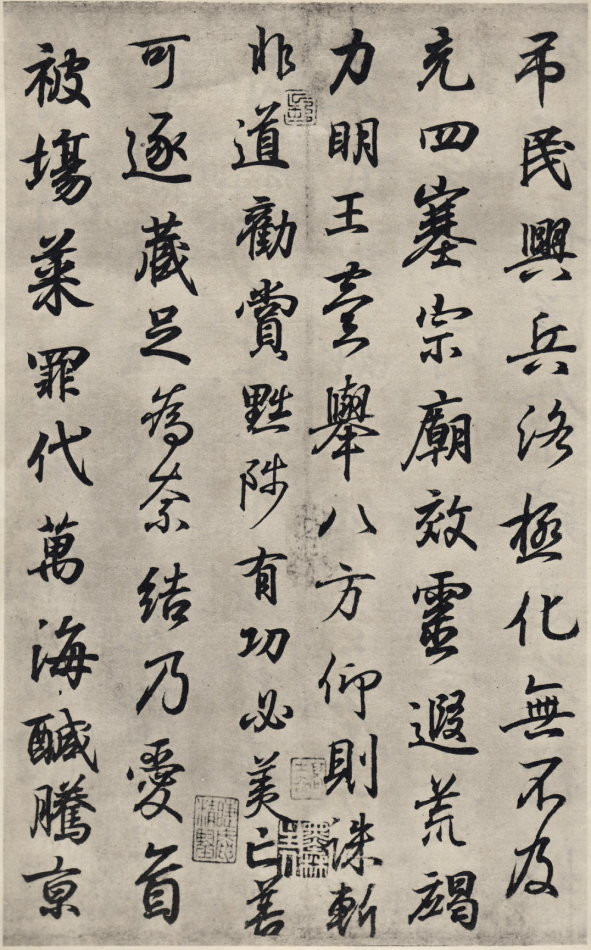 吊民興兵洛極化無不及
充四塞宗廟效靈遐荒竭
力明王臺舉八方仰則誅斬
非道勸賞黜陟有功必美亡善
可逐藏足為奈結乃愛育
被場菜罪代萬海鹹騰京